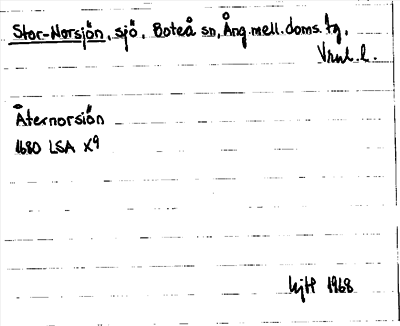 Stor-Norsjön, sjö, Boteå sn, Ång. mell. doms. tg.
Åternorsiön
1680 LSA X9
1968